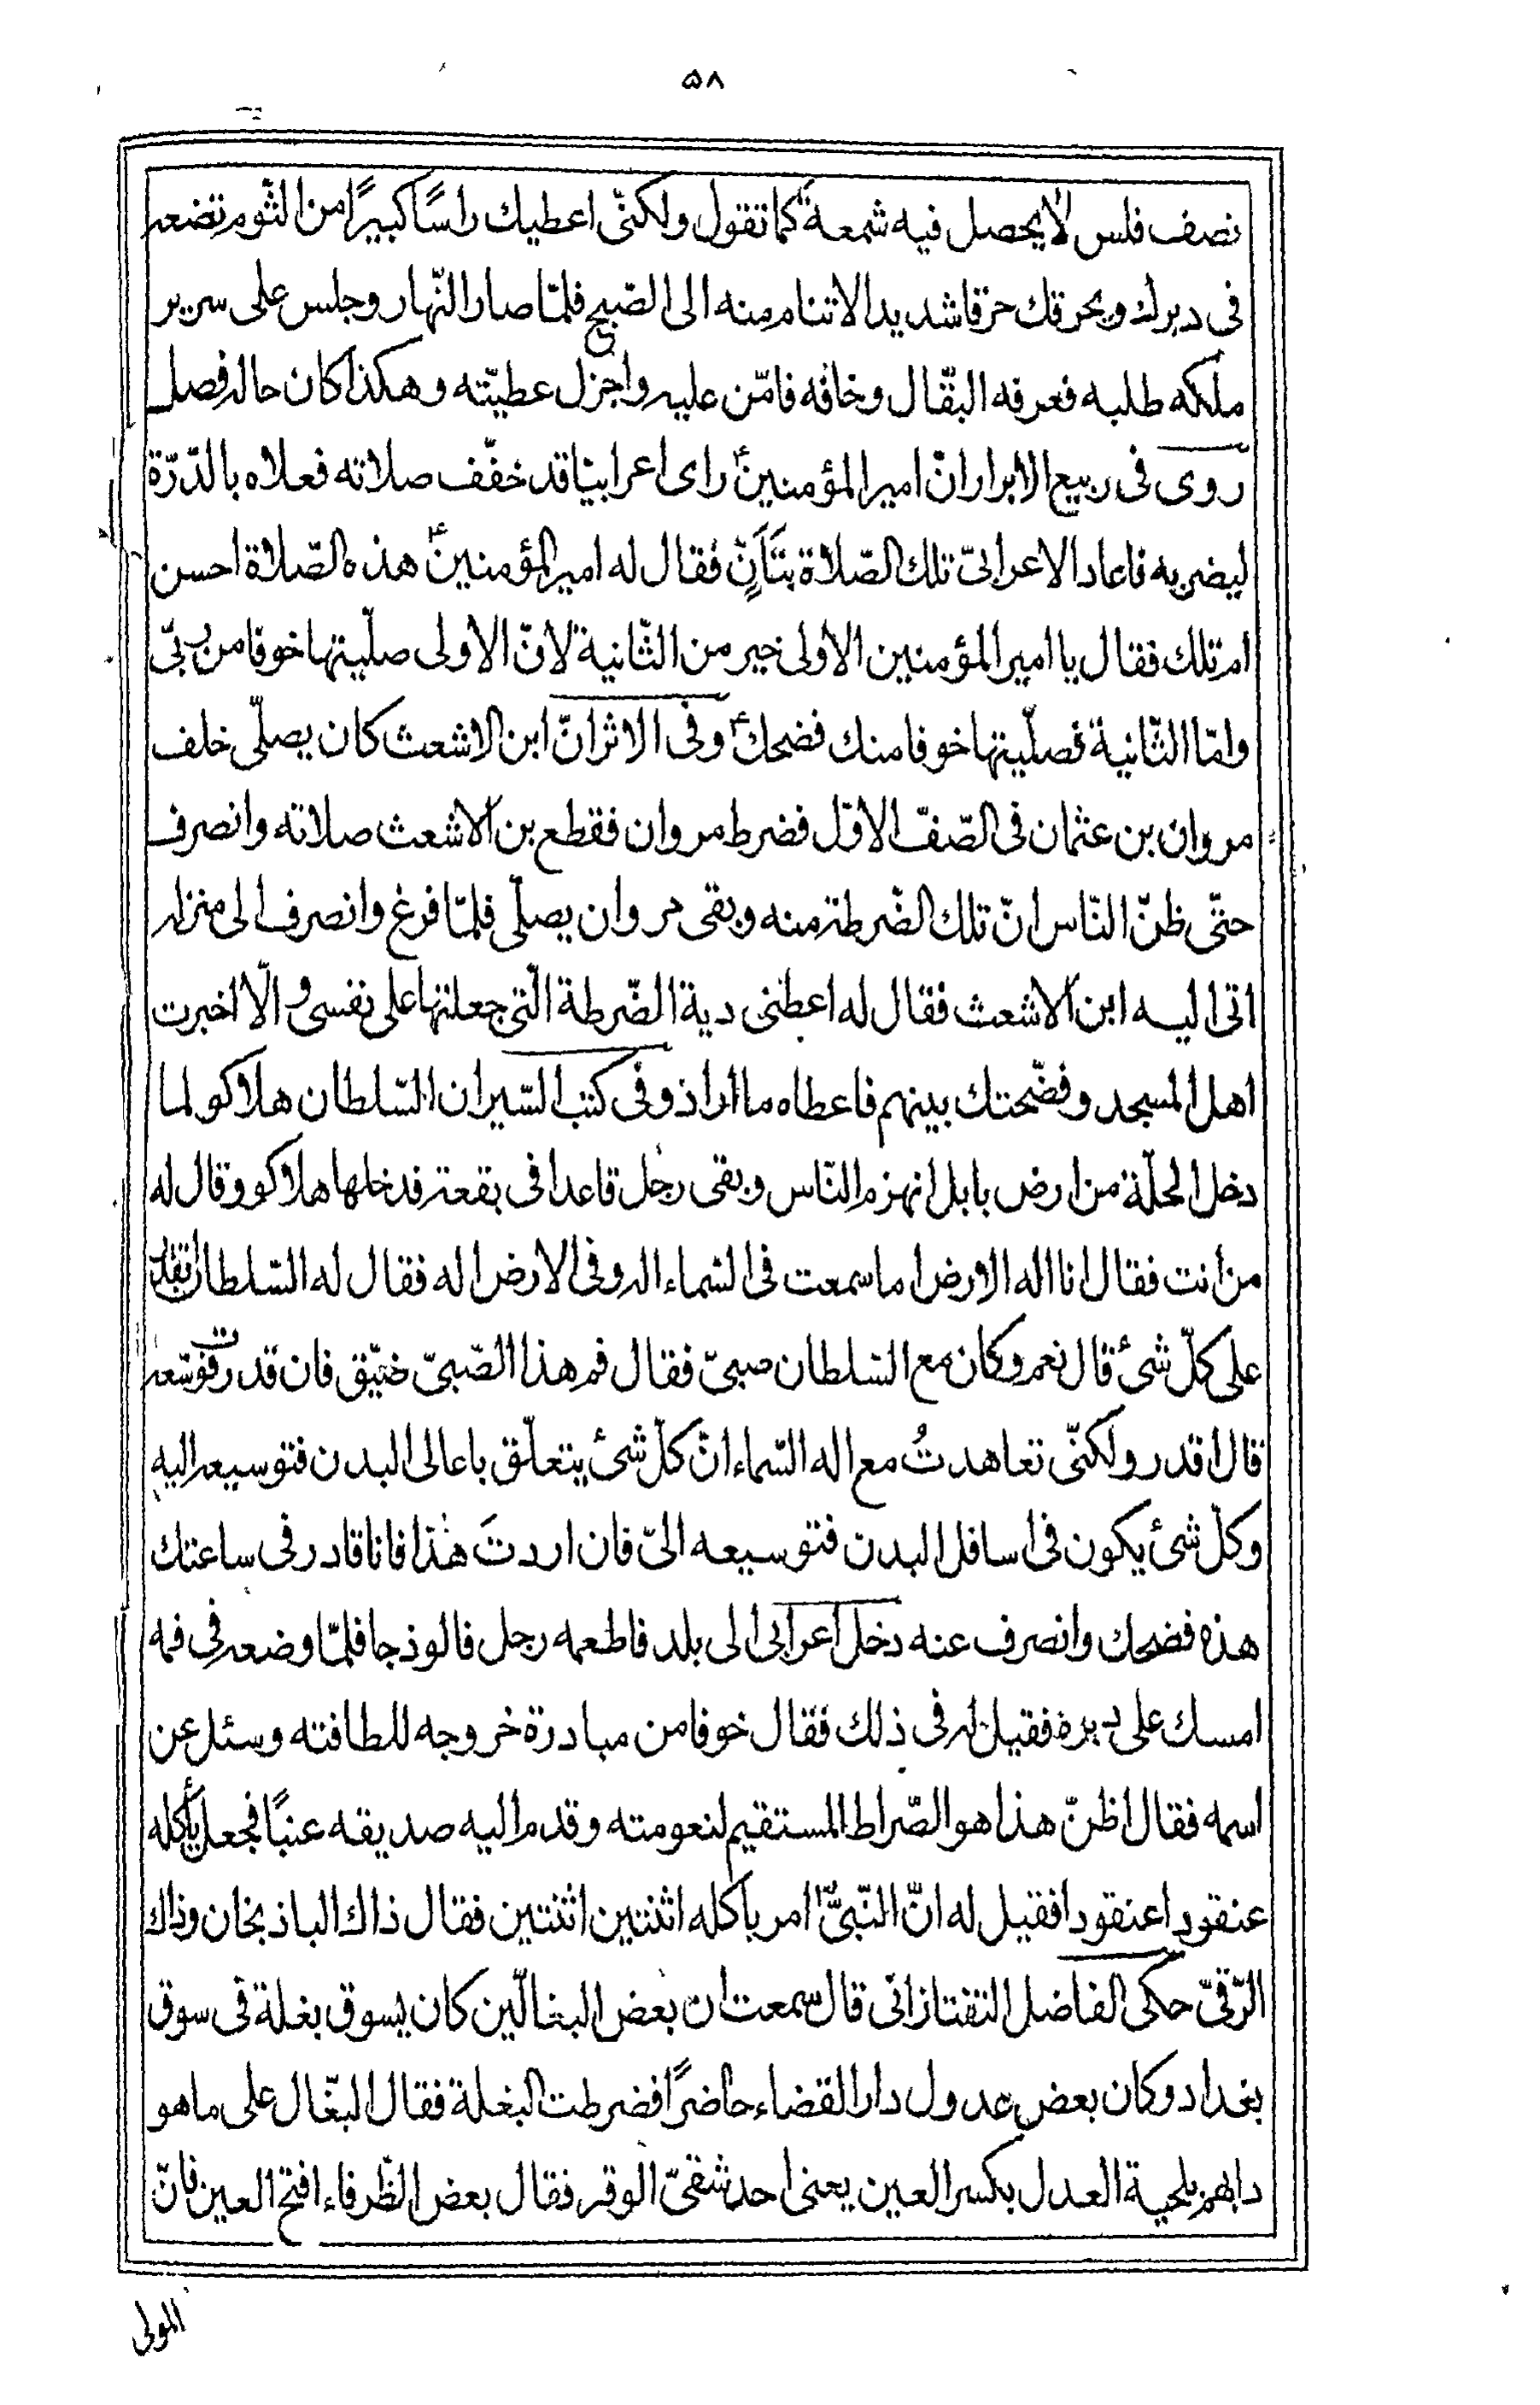 ٥٨
نصف فلس لا يحصل فيه شمعة كما تقول ولكنّى اعطيك راسًا كبيرًا من الثّوم تضعه
فى دبرك ويحرقك حرقا شديدا لا تنام منه الى الصّبح فلمّا صار النّهار وجلس على سرير
ملكه طلبه فعرفه البقّال وخافه فامّن عليه واجزل عطيّته وهكذا كان حاله فصل
روى فى ربيع الابرار انّ امير المؤمنينؑ راى اعرابيّا قد خفّف صلاته فعلاه بالدّرّة
ليضربه فاعاد الاعرابىّ تلك الصّلاة بتَأَنٍّ فقال له امير المؤمنينؑ هذه الصّلاة احسن
ام تلك فقال يا امير المؤمنين الاولى خير من الثّانية لانّ الاولى صلّيتها خوفا من ربّى
وامّا الثّانية فصلّيتها خوفا منك فضحكؑ وفى الاثر انّ ابن الاشعث كان يصلّى خلف
مروان بن عثمان فى الصّفّ الاوّل فضرط مروان فقطع بن الاشعث صلاته وانصرف
حتّى ظنّ النّاس انّ تلك الضّرطة منه وبقى مروان يصلّى فلمّا فرغ وانصرف الى منزله
اتى اليه ابن الاشعث فقال له اعطنى دية الضّرطة الّتى جعلتها على نفسى والّا اخبرت
اهل المسجد وفضّحتك بينهم فاعطاه ما اراد وفى كتب السّير ان السّلطان هلاكو لما
دخل الحلّة من ارض بابل انهزم النّاس وبقى رجل قاعدا فى بقعة فدخلها هلاكو وقال له
من انت فقال انا اله الارض اما سمعت فى السّماء اله وفى الارض اله فقال له السّلطان تقدر
على كلّ شئ قال نعم وكان مع السّلطان صبىّ فقال فم هذا الصّبىّ ضيّق فان قدرت فوسّعه
قال اقدر ولكنّى تعاهدتُ مع اله السّماء انّ كلّ شئ يتعلّق باعالى البدن فتوسيعه اليه
وكلّ شئ يكون فى اسافل البدن فتوسيعه الىّ فان اردتَ هذا فانا قادر فى ساعتك
هذه فضحك وانصرف عنه دخل اعرابى الى بلد فاطعمه رجل فالوذجا فلمّا وضعه فى فمه
امسك على دبره فقيل له فى ذلك فقال خوفا من مبادرة خروجه للطافته وسئل عن
اسمه فقال اظنّ هذا هو الصّراط المستقيم لنعومته وقدم اليه صديقه عنبًا فجعل يأكله
عنقودا عنقودا فقيل له انّ النّبىّؐ امر باكله اثنتين اثنتين فقال ذاك الباذنجان وذاك
الرّقىّ حكى الفاضل التفتازانى قال سمعت ان بعض البغالّين كان يسوق بغلة فى سوق
بغداد وكان بعض عدول دار القضاء حاضرًا فضرطت البغلة فقال البغّال على ما هو
دابهم بلحية العدل بكسر العين يعنى احد شقىّ الوقر فقال بعض الظّرفاء افتح العين فانّ
المولى